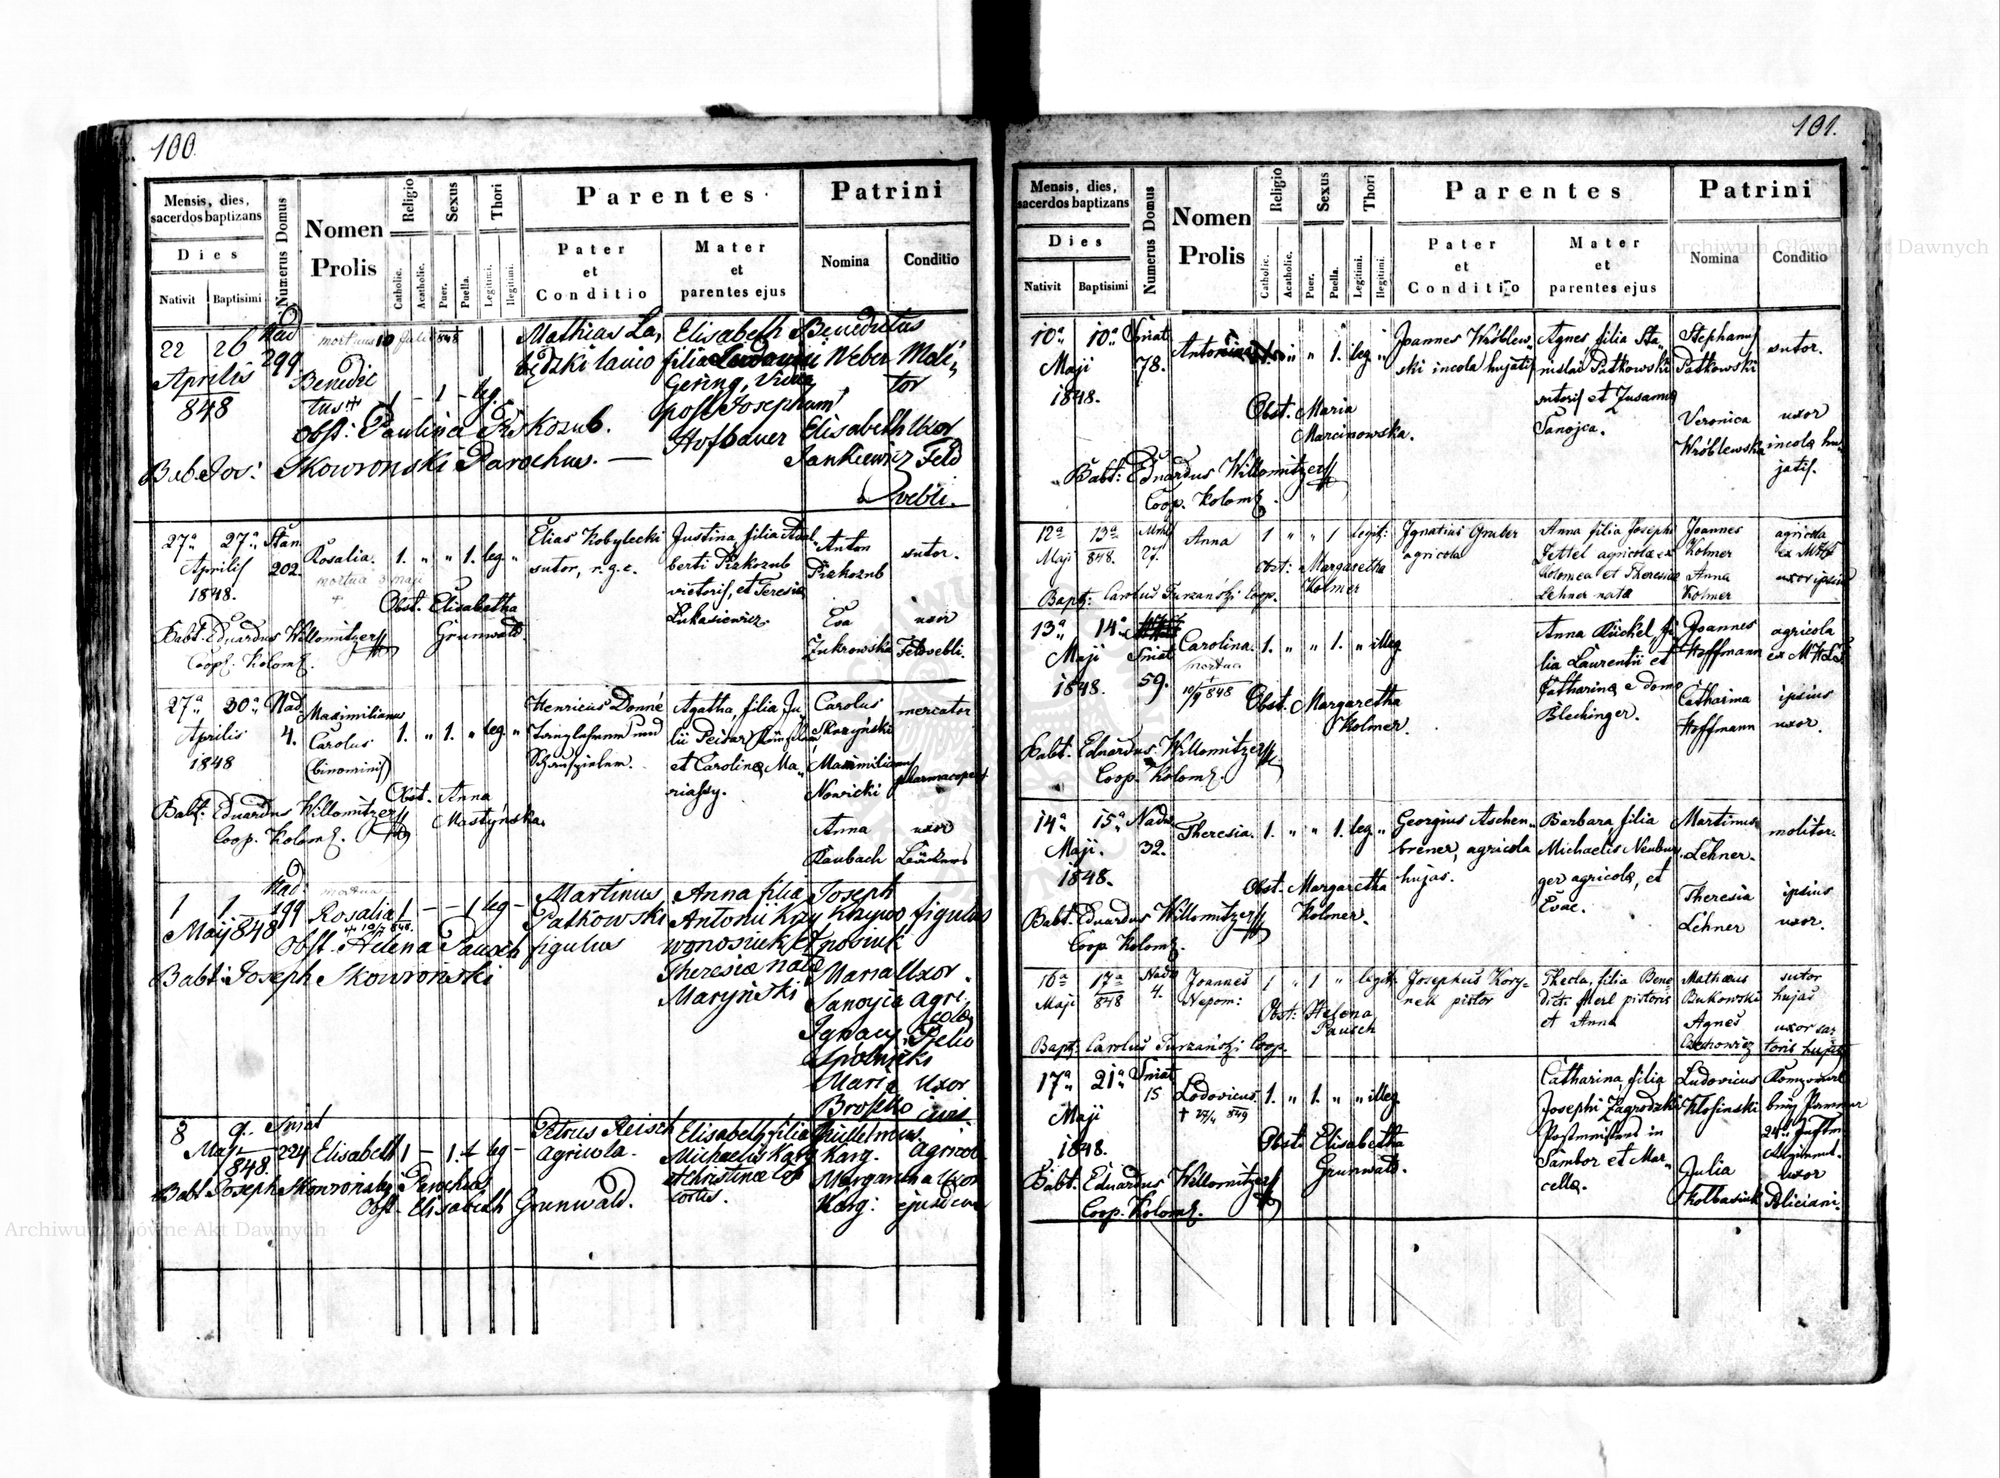 100.
Mensis, dies,
sacerdos baptizans
Dies
Nativit
Baptisimi
Numerus Domus
Nomen
Prolis
Religio
Catholic.
Acatholic.
Sexus
Puer.
Puella.
Thori
Legitimi.
Ilegitimi.
Parentes
Pater
et
Conditio
Mater
et
parentes ejus
Patrini
Nomina
Conditio
22 26 Nad
299
Aprilis
848
Benedic
tus + 1 – 1 – leg.
Obst: Paulina Piskozub.
Bab. Jos: Skowronski Parochus.
Mathias La,
lanio
Elisabeth
filia
Gering, Vidua
post Josephum
Hofbauer
Benedictus
Weber Moli,,
tor
Elisabeth Uxor
Jankiewicz Feld
vebli.
27a 27a Stan.
Aprilis 202.
1848.
Rosalia. 1. " " 1. leg "
mortua 3 maji
+
Obst. Elisabetha
Grunwald.
Babt. Eduardus Willomitzer
Coop. Kolom.
Elias Kobylecki
sutor, r.g.c.
Justina, filia Adal
berti Pizkozub
victoris, et Teresia
Lukasiewicz.
Anton
Pizkozub
sutor.
Eva uxor
Zukrowska Feldvebli.
27a 30a Nad.
Aprilis 4.
1848
Maximilianus
Carolus
(binominis)
1. " 1. " leg "
Obst. Anna
Mastyńska.
Babt. Eduardus Willomitzer
Coop. Kolom.
Henricus Donné
Agatha, filia Ju,,
lii
et Carolina Ma,,
riassy.
Carolus
Skrzyński
mercator
Maximilianus
Nowicki
pharmacopeus
Anna uxor
Raubach
1 1 Nad.
199
Maij 848
mortua
Rosalia 1 – – 1 leg –
Obst. Helena Pausch
Babt: Joseph Skowroński
Martinus
Patkowski
figulus
Anna filia
Antonii Krzy
wonosiuk et
Theresia nata
Maryński
Joseph
Krzywo
nosiuk
figulus
Maria Uxor
Sanoyca agri,
colæ
Ignacy
Maria Uxor
Broszko
8 9. Sniat
Maji
848. 224
Elisabeth 1 – 1. leg –
Babt Joseph Skowroński Parochus
Obst. Elisabeth Grunwald.
Petrus Reisch
agricola.
Elisabeth, filia
Michaelis Karg
et Christinae
Guillelmus
Karg. Agricol
Margaretha Uxor
Karg: ejusdem
101.
Mensis, dies,
sacerdos baptizans
Dies
Nativit
Baptisimi
Numerus Domus
Nomen
Prolis
Religio
Catholic.
Acatholic.
Sexus
Puer.
Puella.
Thori
Legitimi.
Ilegitimi.
Parentes
Pater
et
Conditio
Mater
et
parentes ejus
Patrini
Nomina
Conditio
10a 10a Sniat
Maji 78.
1848.
1. leg "
Obst. Maria
Marcinowska.
Babt: Eduardus Willomitzer
Coop. Kolom.
Joannes Wróblew,,
ski incola hujatis
Agnes, filia Sta,,
nislai Patkowski
sutoris et Zusanna
Sanojca.
Stephanus
Patkowski
sutor.
Veronica uxor
Wróblewska incolæ hu,,
jatis.
12a 13a
Maji 848 27.
Anna 1 " " 1 legit:
Obst: Margaretha
Kolmer
Bapt: Carolus Turzański Coop.
Ignatius Gruber
agricola
Anna filia Josephi
Fettel agricolæ ex
Kolomea et Theresiæ
Lehner nata
Joannes
Kolmer
agricola
Anna
Kolmer
uxor ipsius
13a 14a
Maji Sniat
1848. 59.
Carolina. 1. " " 1. " illeg.
mortua
+
10/9 848
Obst. Margaretha
Kolmer.
Babt. Eduardus Willomitzer
Coop. Kolom.
Anna Rückel, fi,,
lia Laurentii et
Catharina e domo
Blechinger.
Joannes
Hoffmann
agricola
Catharina
Hoffmann
ipsius
uxor.
14a 15a Nadw.
Maji. 32.
1848.
Theresia. 1. " " 1. leg. "
Obst. Margaretha
Kolmer.
Babt. Eduardus Willomitzer
Coop. Kolom.
Georgius Aschen,,
brener, agricola
hujas.
Barbara, filia
Michaelis Neubur,,
ger agricolæ, et
Evæ.
Martinus
Lehner.
molitor.
Theresia
Lehner
ipsius
uxor.
16a 17a Nadw
Maji 848 4.
Joannes
Nepom:
1 " 1 " legit:
Obst: Helena
Pausch
Bapt: Carolus Turzański Coop.
Josephus Kory-
nek pistor
Thecla, filia Bene
dicti Merl pistoris
et Anna
Mathæus
Bukowski
sutor
hujas
Agnes
uxor sar
toris hujatis
17a 21a Sniat
Maji 15
1848.
Lodovicus
+ 27/4 849
1. " 1. " " illeg.
Obst. Elisabetha
Grunwald.
Babt. Eduardus Willomitzer
Coop. Kolom.
Catharina, filia
Josephi Zagrodzki
Postmeisters in
Sambor et Mar,,
cella.
Ludovicus
Klosinski
Julia
Kolbasiuk
uxor
Policiani.
Archiwum Główne Akt Dawnych
Archiwum Główne Akt Dawnych